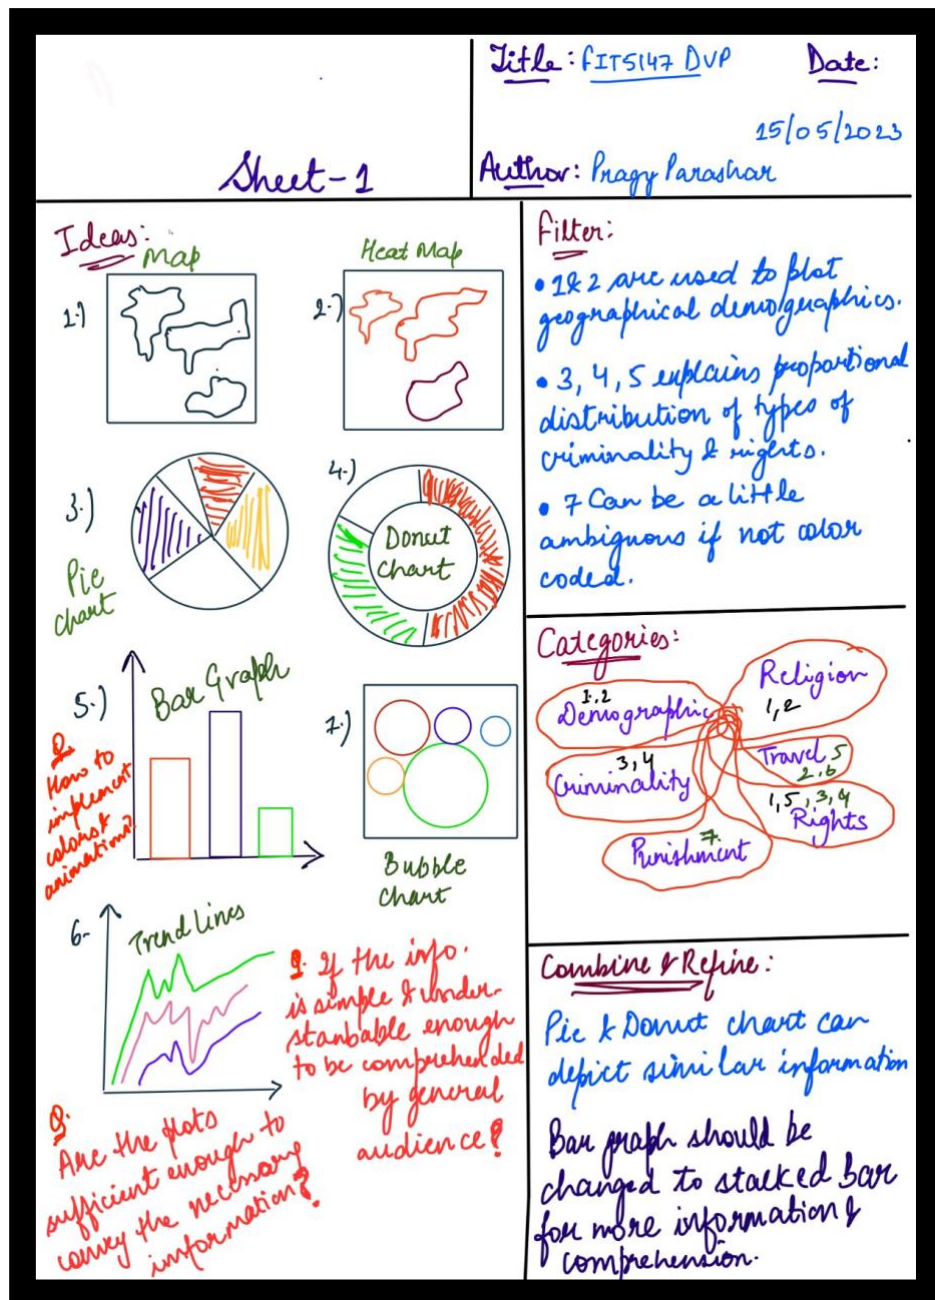 Sheet-1
Title: FIT5147 DVP
Date:
15/05/2023
Author: Pragy Parashar
Ideas:
Map
1.)
Heat Map
2.)
3.)
Pie
Chart
4.)
Donut
Chart
5.)
Bar Graph
Q.
How to
implement
colors &
animation?
7.)
Bubble
Chart
6-
Trend Lines
Q. If the info.
is simple & under-
stanbable enough
to be comprehended
by general
audience?
Q.
Are the plots
sufficient enough to
convey the necessary
information?
Filter:
• 1&2 are used to plot
geographical demographics.
• 3, 4, 5 explains proportional
distribution of types of
criminality & rights.
• 7 Can be a little
ambiguous if not color
coded.
Categories:
1,2
Demographic
Religion
1,2
3,4
Criminality
Travel 5
2,6
1,5,3,4
Rights
7.
Punishment
Combine & Refine:
Pie & Donut chart can
depict similar information
Bar graph should be
changed to stacked bar
for more information &
comprehension.